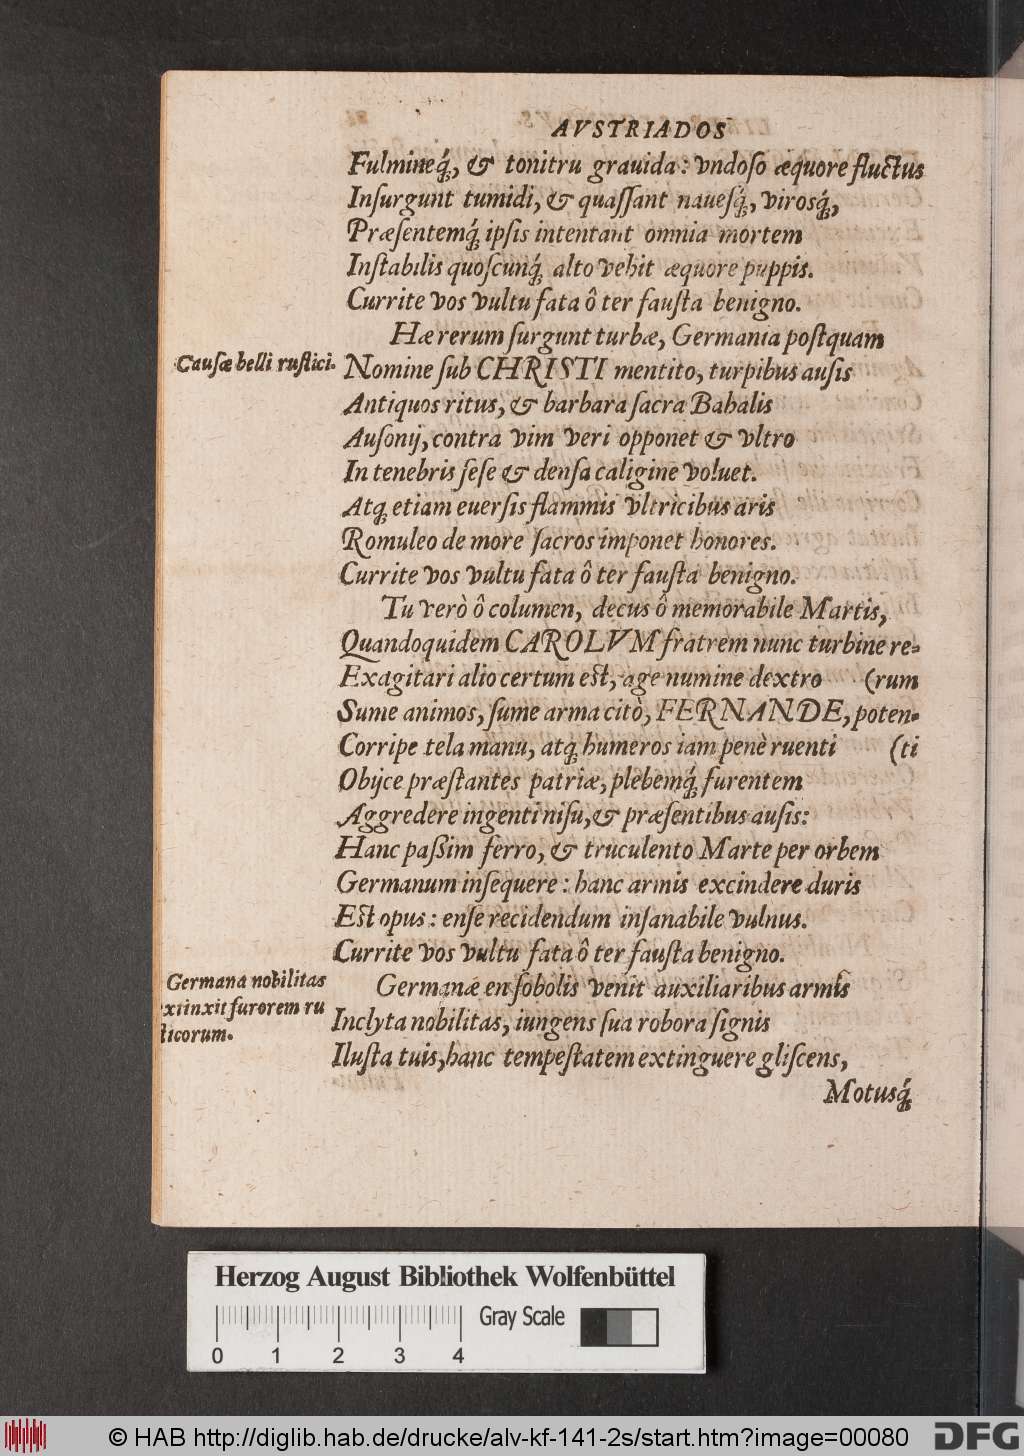 AVSTRIADOS
Fulmineq́ꝫ, & tonitru grauida: vndoso æquore fluctus
Insurgunt tumidi, & quassant nauesq́ꝫ, virosq́ꝫ,
Præsentemq́ꝫ ipsis intentant omnia mortem
Instabilis quoscunq́ꝫ alto vehit æquore puppis.
Currite vos vultu fata ô ter fausta benigno.
Hæ rerum surgunt turbæ, Germania postquam
Causæ belli rustici.
Nomine sub CHRISTI mentito, turpibus ausis
Antiquos ritus, & barbara sacra Bahalis
Ausonij, contra vim veri opponet & vltro
In tenebris sese & densa caligine voluet.
Atqꝫ etiam euersis flammis vltricibus aris
Romuleo de more sacros imponet honores.
Currite vos vultu fata ô ter fausta benigno.
Tu verò ô columen, decus ô memorabile Martis,
Quandoquidem CAROLVM fratrem nunc turbine re-
Exagitari alio certum est, age numine dextro (rum
Sume animos, sume arma citò, FERNANDE, poten-
Corripe tela manu, atqꝫ humeros iam penè ruenti (ti
Obijce præstantes patriæ, plebemq́ꝫ furentem
Aggredere ingenti nisu, & præsentibus ausis:
Hanc passim ferro, & truculento Marte per orbem
Germanum insequere: hanc armis excindere duris
Est opus: ense recidendum insanabile vulnus.
Currite vos vultu fata ô ter fausta benigno.
Germana nobilitas
extinxit furorem ru
sticorum.
Germanæ en sobolis venit auxiliaribus armis
Inclyta nobilitas, iungens sua robora signis
Ilusta tuis, hanc tempestatem extinguere gliscens,
Motusq́ꝫ
Herzog August Bibliothek Wolfenbüttel
Gray Scale
0 1 2 3 4
© HAB http://diglib.hab.de/drucke/alv-kf-141-2s/start.htm?image=00080
DFG